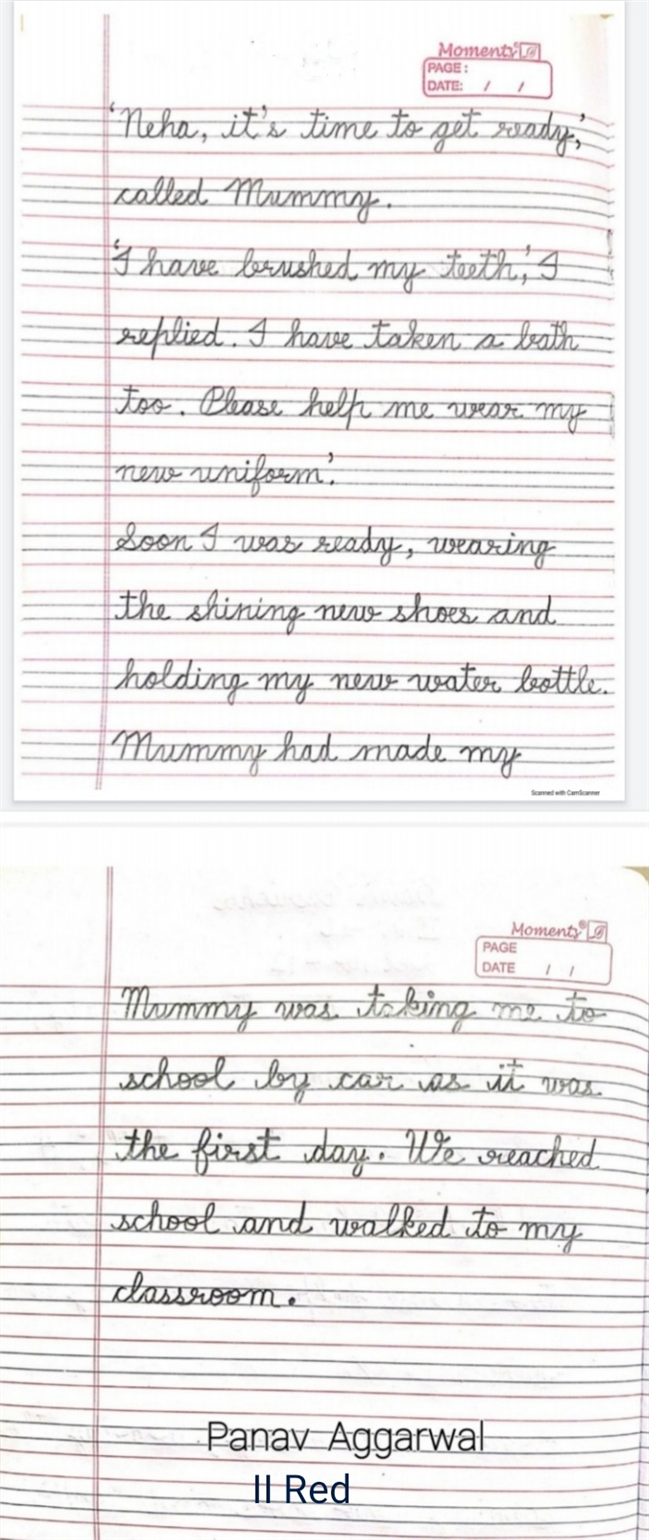 Moments
PAGE:
DATE: / /
'Neha, it's time to get ready,'
called Mummy.
'I have brushed my teeth,' I
replied. I have taken a bath
too. Please help me wear my
new uniform'.
Soon I was ready, wearing
the shining new shoes and
holding my new water bottle.
Mummy had made my
Scanned with CamScanner
Moments®
PAGE
DATE / /
Mummy was taking me to
school by car as it was
the first day. We reached
school and walked to my
classroom.
Panav Aggarwal
II Red